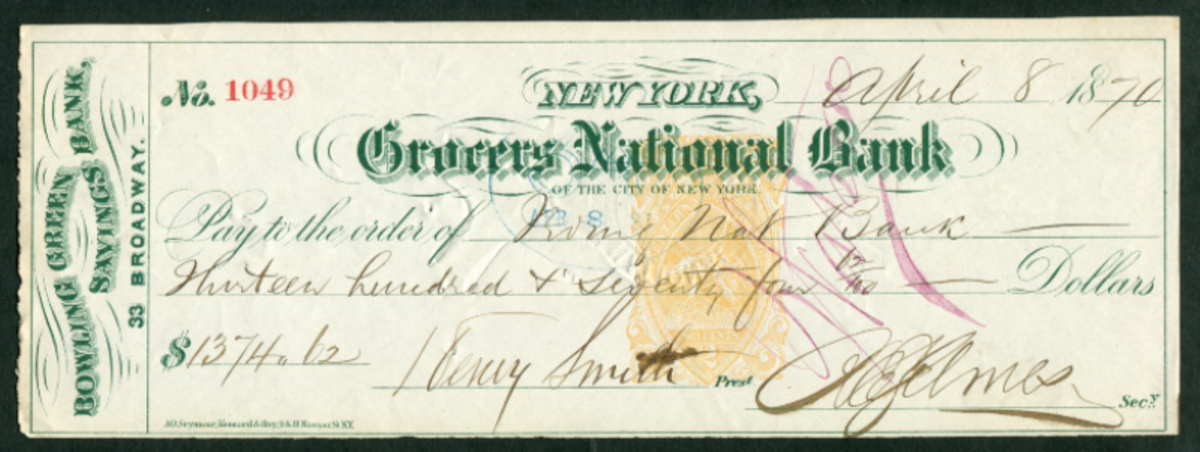 BOWLING GREEN
SAVINGS BANK,
33 BROADWAY.
No. 1049
NEW YORK, April 8 1870
Grocers National Bank
OF THE CITY OF NEW YORK.
APR 8
Pay to the order of Irving Nat Bank
Thirteen hundred & Seventy four 62/100 Dollars
$1374.62
Henry Smith Prest
Secy.